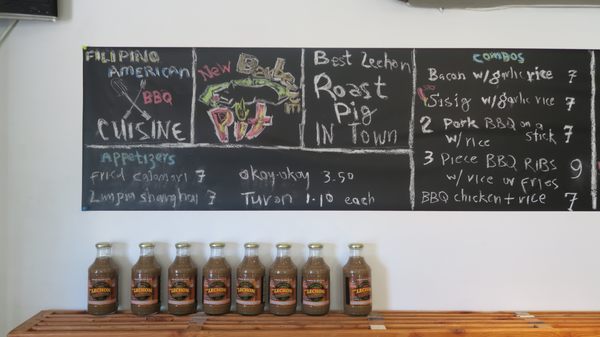 FILIPINO
AMERICAN
BBQ
CUISINE
New
Pit
Best Lechon
Roast
Pig
IN TOWN
APPETIZERS
Fried calamari 7
Lumpia shanghai 7
OKOY-OKOY 3.50
Turon 1.10 each
COMBOS
Bacon w/garlic rice 7
Sisig w/garlic rice 7
2 Pork BBQ on a
stick 7
w/rice
3 Piece BBQ RIBS
w/rice or fries 9
BBQ chicken + rice 7
LECHON
LECHON
LECHON
LECHON
LECHON
LECHON
LECHON